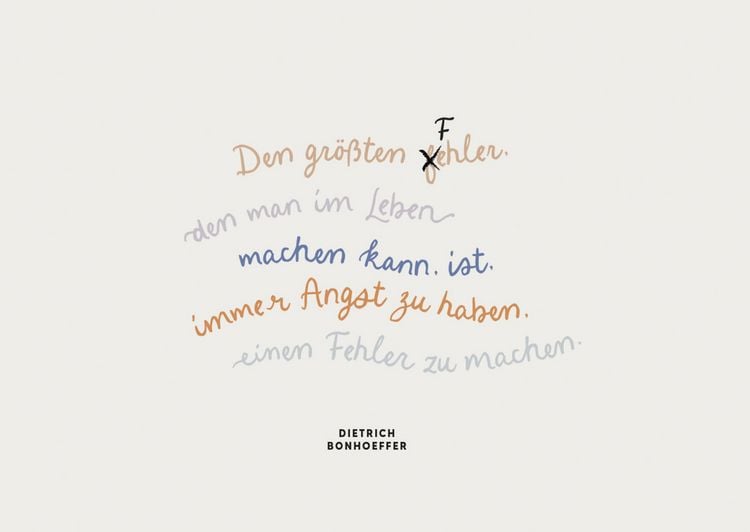 F
Den größten fehler.
den man im Leben
machen kann. ist.
immer Angst zu haben.
einen Fehler zu machen.
DIETRICH
BONHOEFFER